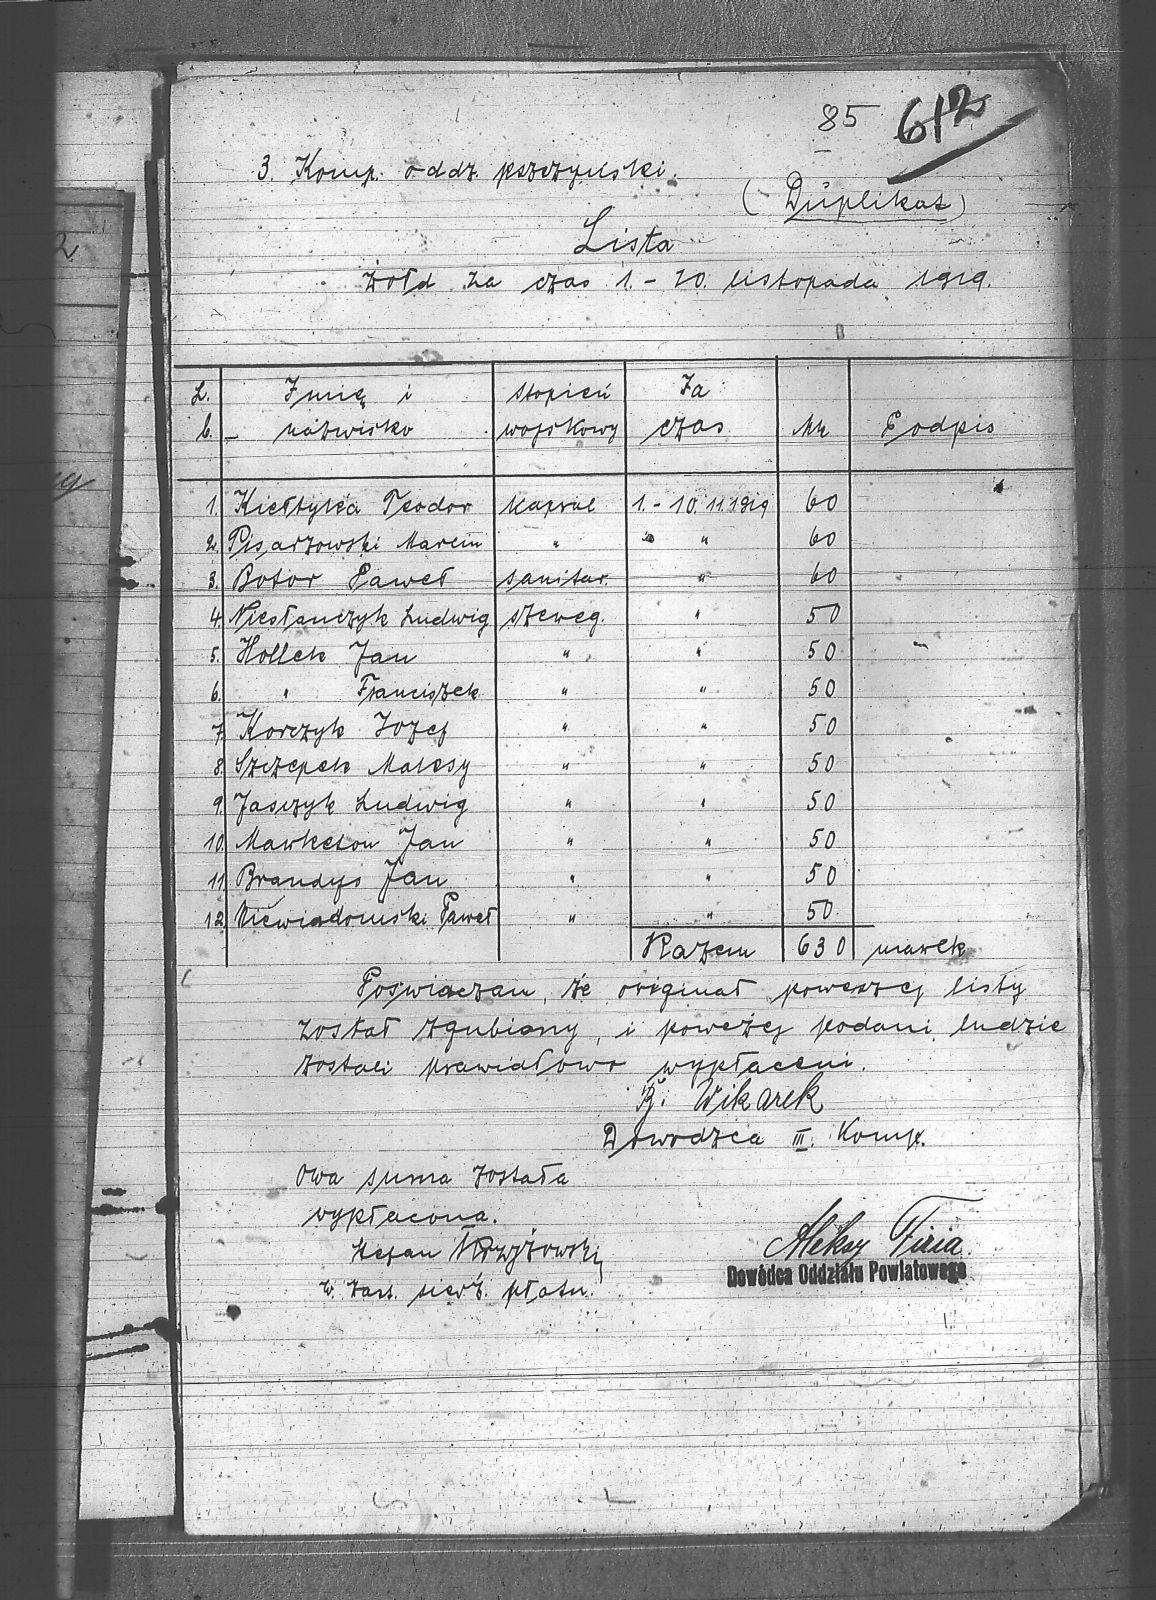 85 612
3. Komp. oddz. pszczyński.
(Duplikat)
Lista
żołd za czas 1. - 10. listopada 1919.
L. Imię i stopień Za
b. nazwisko wojskowy czas Mk Podpis
1. Kiełtyka Teodor kapral 1. - 10. 11. 1919 60
2. Pisarzowski Marcin " " 60
3. Botor Paweł sanitar. " 60
4. Niesłanczyk Ludwig szereg. " 50
5. Hollek Jan " " 50
6. " Franciszek " " 50
7. Korczyk Jozef " " 50
8. Szczepek " " 50
9. Jasczyk Ludwig " " 50
10. Marketon Jan " " 50
11. Brandys Jan " " 50
12. Niewiadomski Paweł " " 50
Razem 630 marek
Poświaczam, że originał powyszej listy
został zgubiony, i powyżej podani ludzie
zostali prawidłowo wypłaceni.
Wikarek
Dowodzca III. Komp.
Owa suma została
wypłacona.
Stefan Krzyżowski
w zast. płatn.
Aleksy Fizia.
Dowódca Oddziału Powiatowego